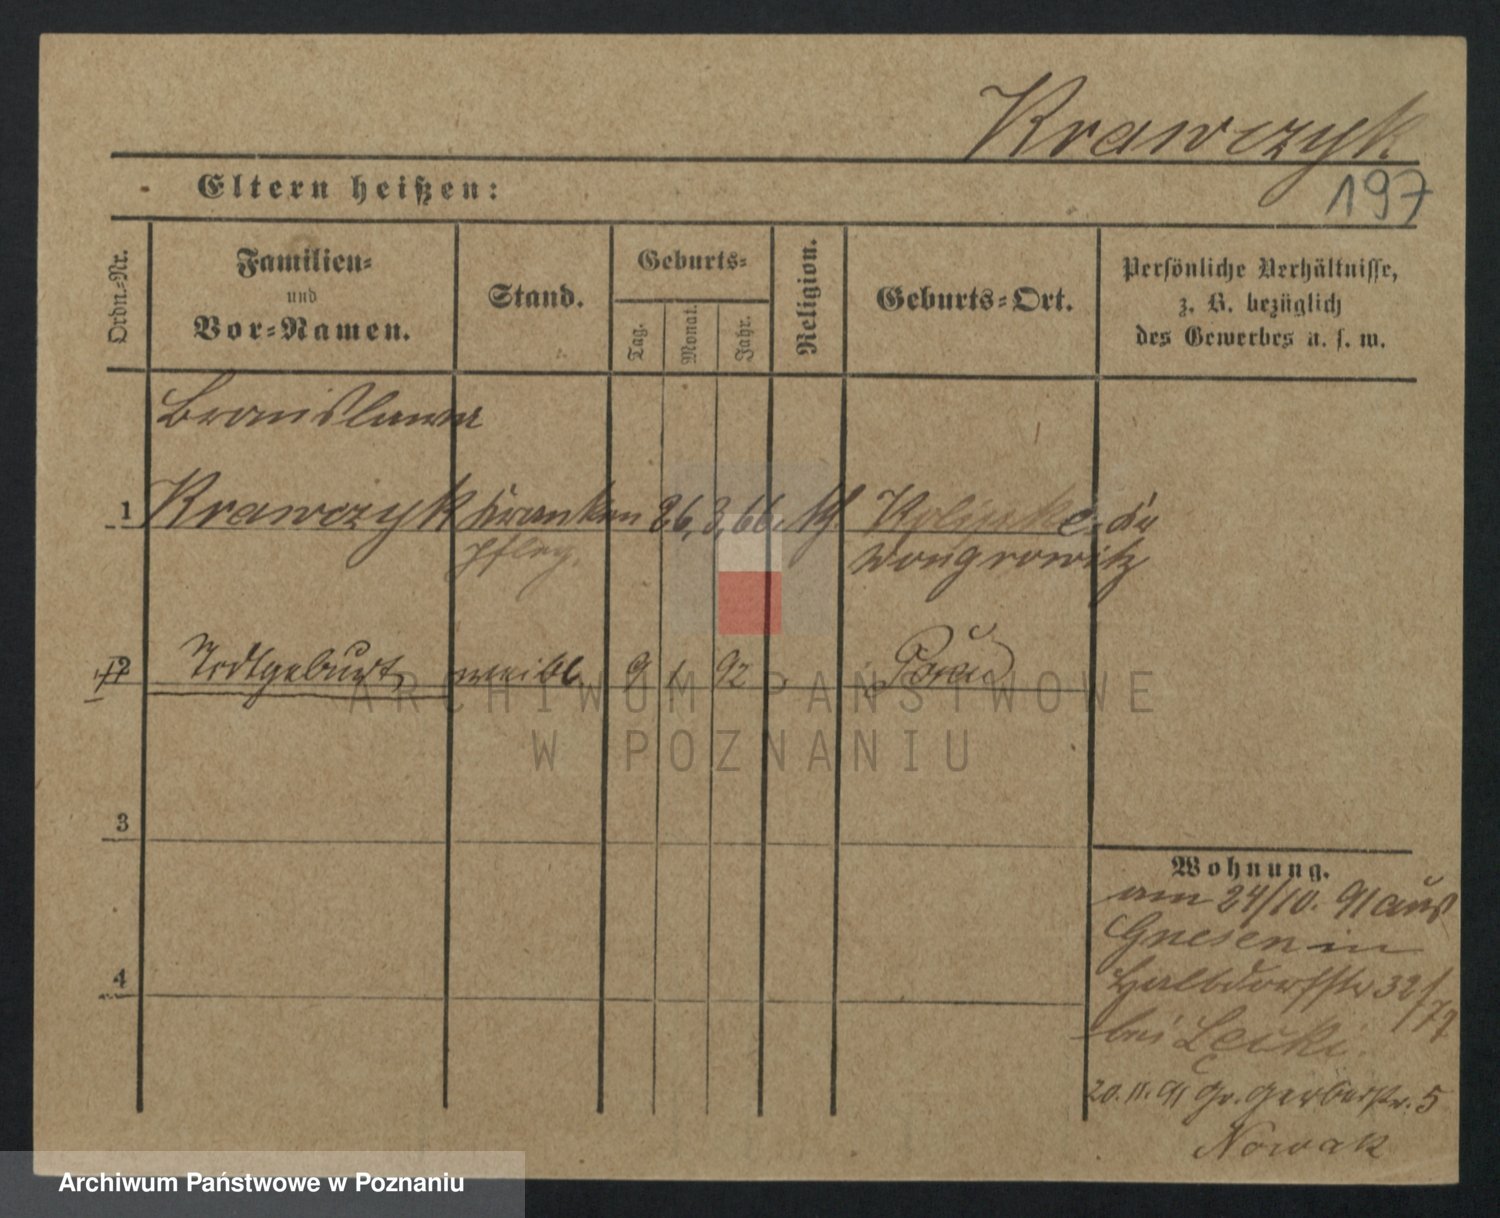 Krawczyk
197
Eltern heißen:
Ordn.-Nr.
Familien-
und
Vor-Namen.
Stand.
Geburts-
Tag.
Monat.
Jahr.
Religion.
Geburts-Ort.
Persönliche Verhältnisse,
z. B. bezüglich
des Gewerbes u. s. w.
Bronislawa
1 Krawczyk Kranken 26. 66.
pfleg. Wongrowitz
2 Todtgeburt weibl. 9 1 92 Posen
ARCHIWUM PAŃSTWOWE
W POZNANIU
3
4
Wohnung.
am 24/10. 91 aus
Gnesen in
Halbdorfstr 32/
bei
20. 11. 91 Gr. Gerberstr. 5
Nowak
Archiwum Państwowe w Poznaniu